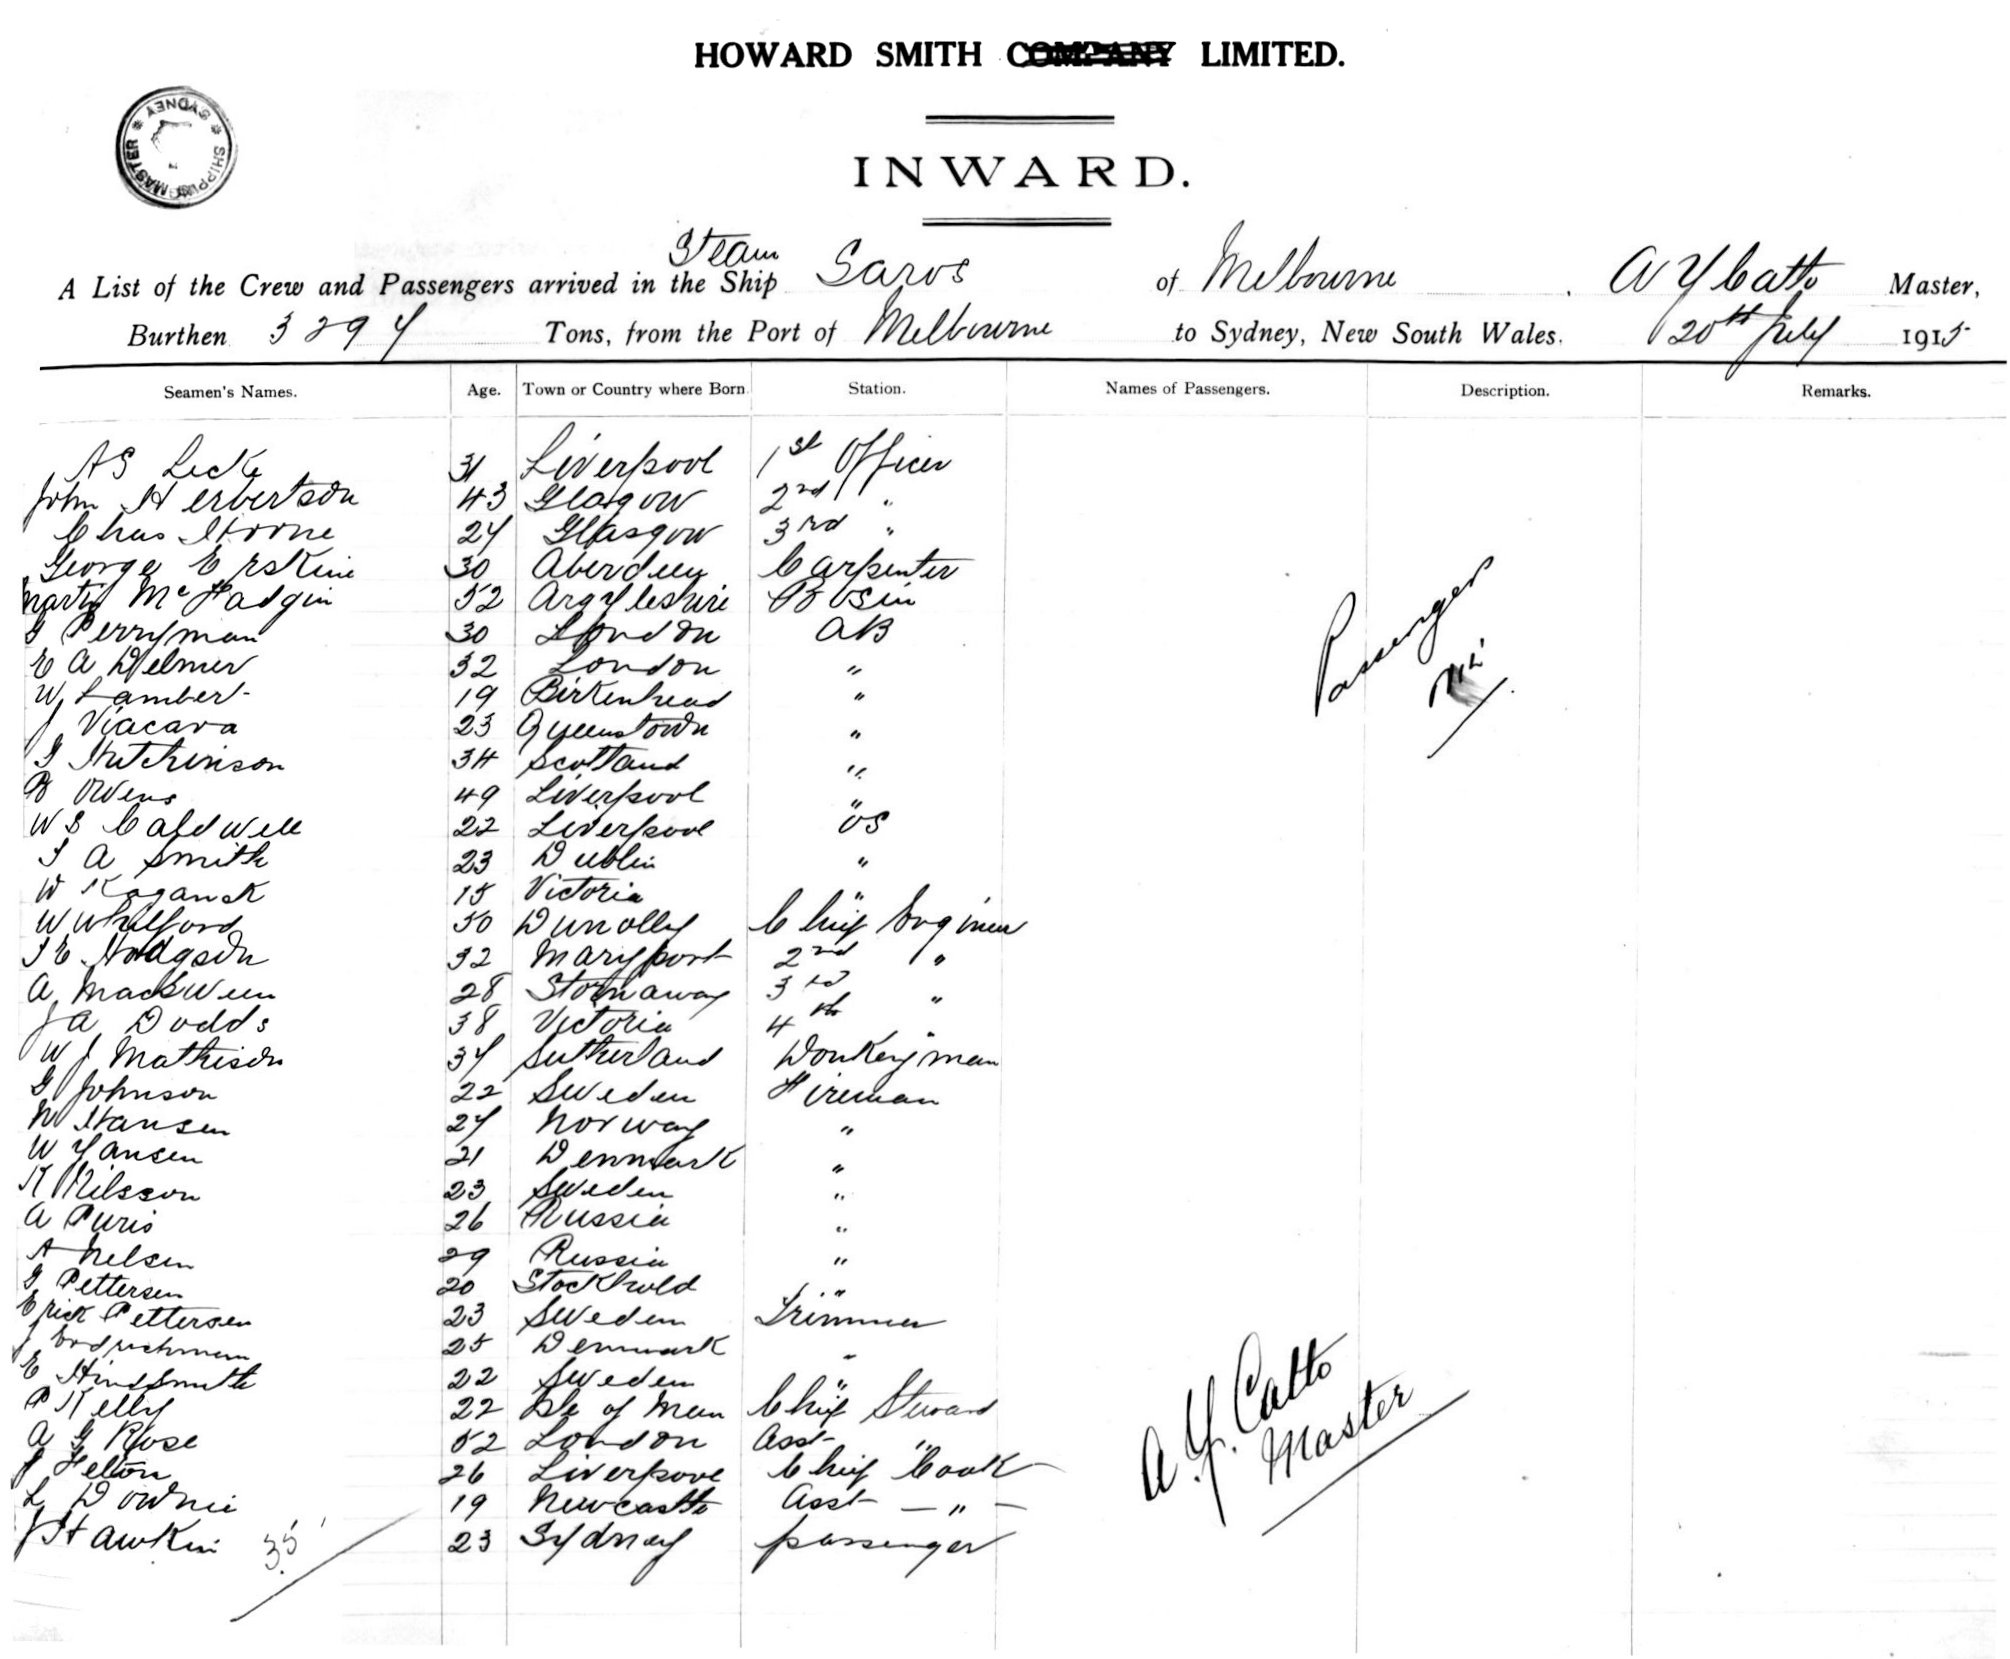 HOWARD SMITH COMPANY LIMITED.
SYDNEY * SHIPPING MASTER *
INWARD.
Steam
A List of the Crew and Passengers arrived in the Ship Saros of Melbourne A Y Catto Master,
Burthen 3297 Tons, from the Port of Melbourne to Sydney, New South Wales. 20th July 1915
Seamen's Names. Age. Town or Country where Born. Station. Names of Passengers. Description. Remarks.
A S Lecke 31 Liverpool 1st Officer
John Herbertson 43 Glasgow 2nd "
Chas Horne 27 Glasgow 3rd "
George Erskine 30 Aberdeen Carpenter
Martin McFadgin 52 Argyleshire Bosin
G Perryman 30 London AB
E A Delmer 32 London "
W Lambert 19 Birkenhead "
J Viacava 23 Queenstown "
G Hutchinson 34 Scotland "
P Owens 49 Liverpool "
W S Caldwell 22 Liverpool OS
J A Smith 23 Dublin "
W 15 Victoria "
W Whilford 50 Dunolly Chief Engineer
J E Hodgson 32 Maryport 2nd "
A MacSween 28 Stornaway 3rd "
J A Dodds 38 Victoria 4th "
W J Mathison 37 Sutherland Donkeyman
G Johnson 22 Sweden Fireman
N Hansen 27 Norway "
W Yansen 21 Denmark "
K Nilsson 23 Sweden "
A Puris 26 Russia "
A Nelsen 29 Russia "
G Pettersen 20 Stockhold "
Erick Pettersen 23 Sweden Trimmer
J 25 Denmark "
E Hindsmith 22 Sweden "
P Kelly 22 Isle of Man Chief Steward
A G Rose 52 London Asst "
J Felton 26 Liverpool Chief Cook
L Downie 19 Newcastle Asst — " —
J Hawkin 23 Sydney passenger
35
Passengers
Nil
A. Y. Catto
Master